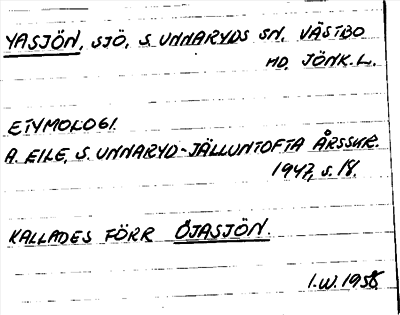 YASJÖN, SJÖ, S. UNNARYDS SN, VÄSTBO
HD. JÖNK. L.
ETYMOLOGI.
A. EILE, S. UNNARYD-JÄLLUNTOFTA ÅRSSKR.
1947, S. 18.
KALLADES FÖRR ÖJASJÖN.
I.W. 1958